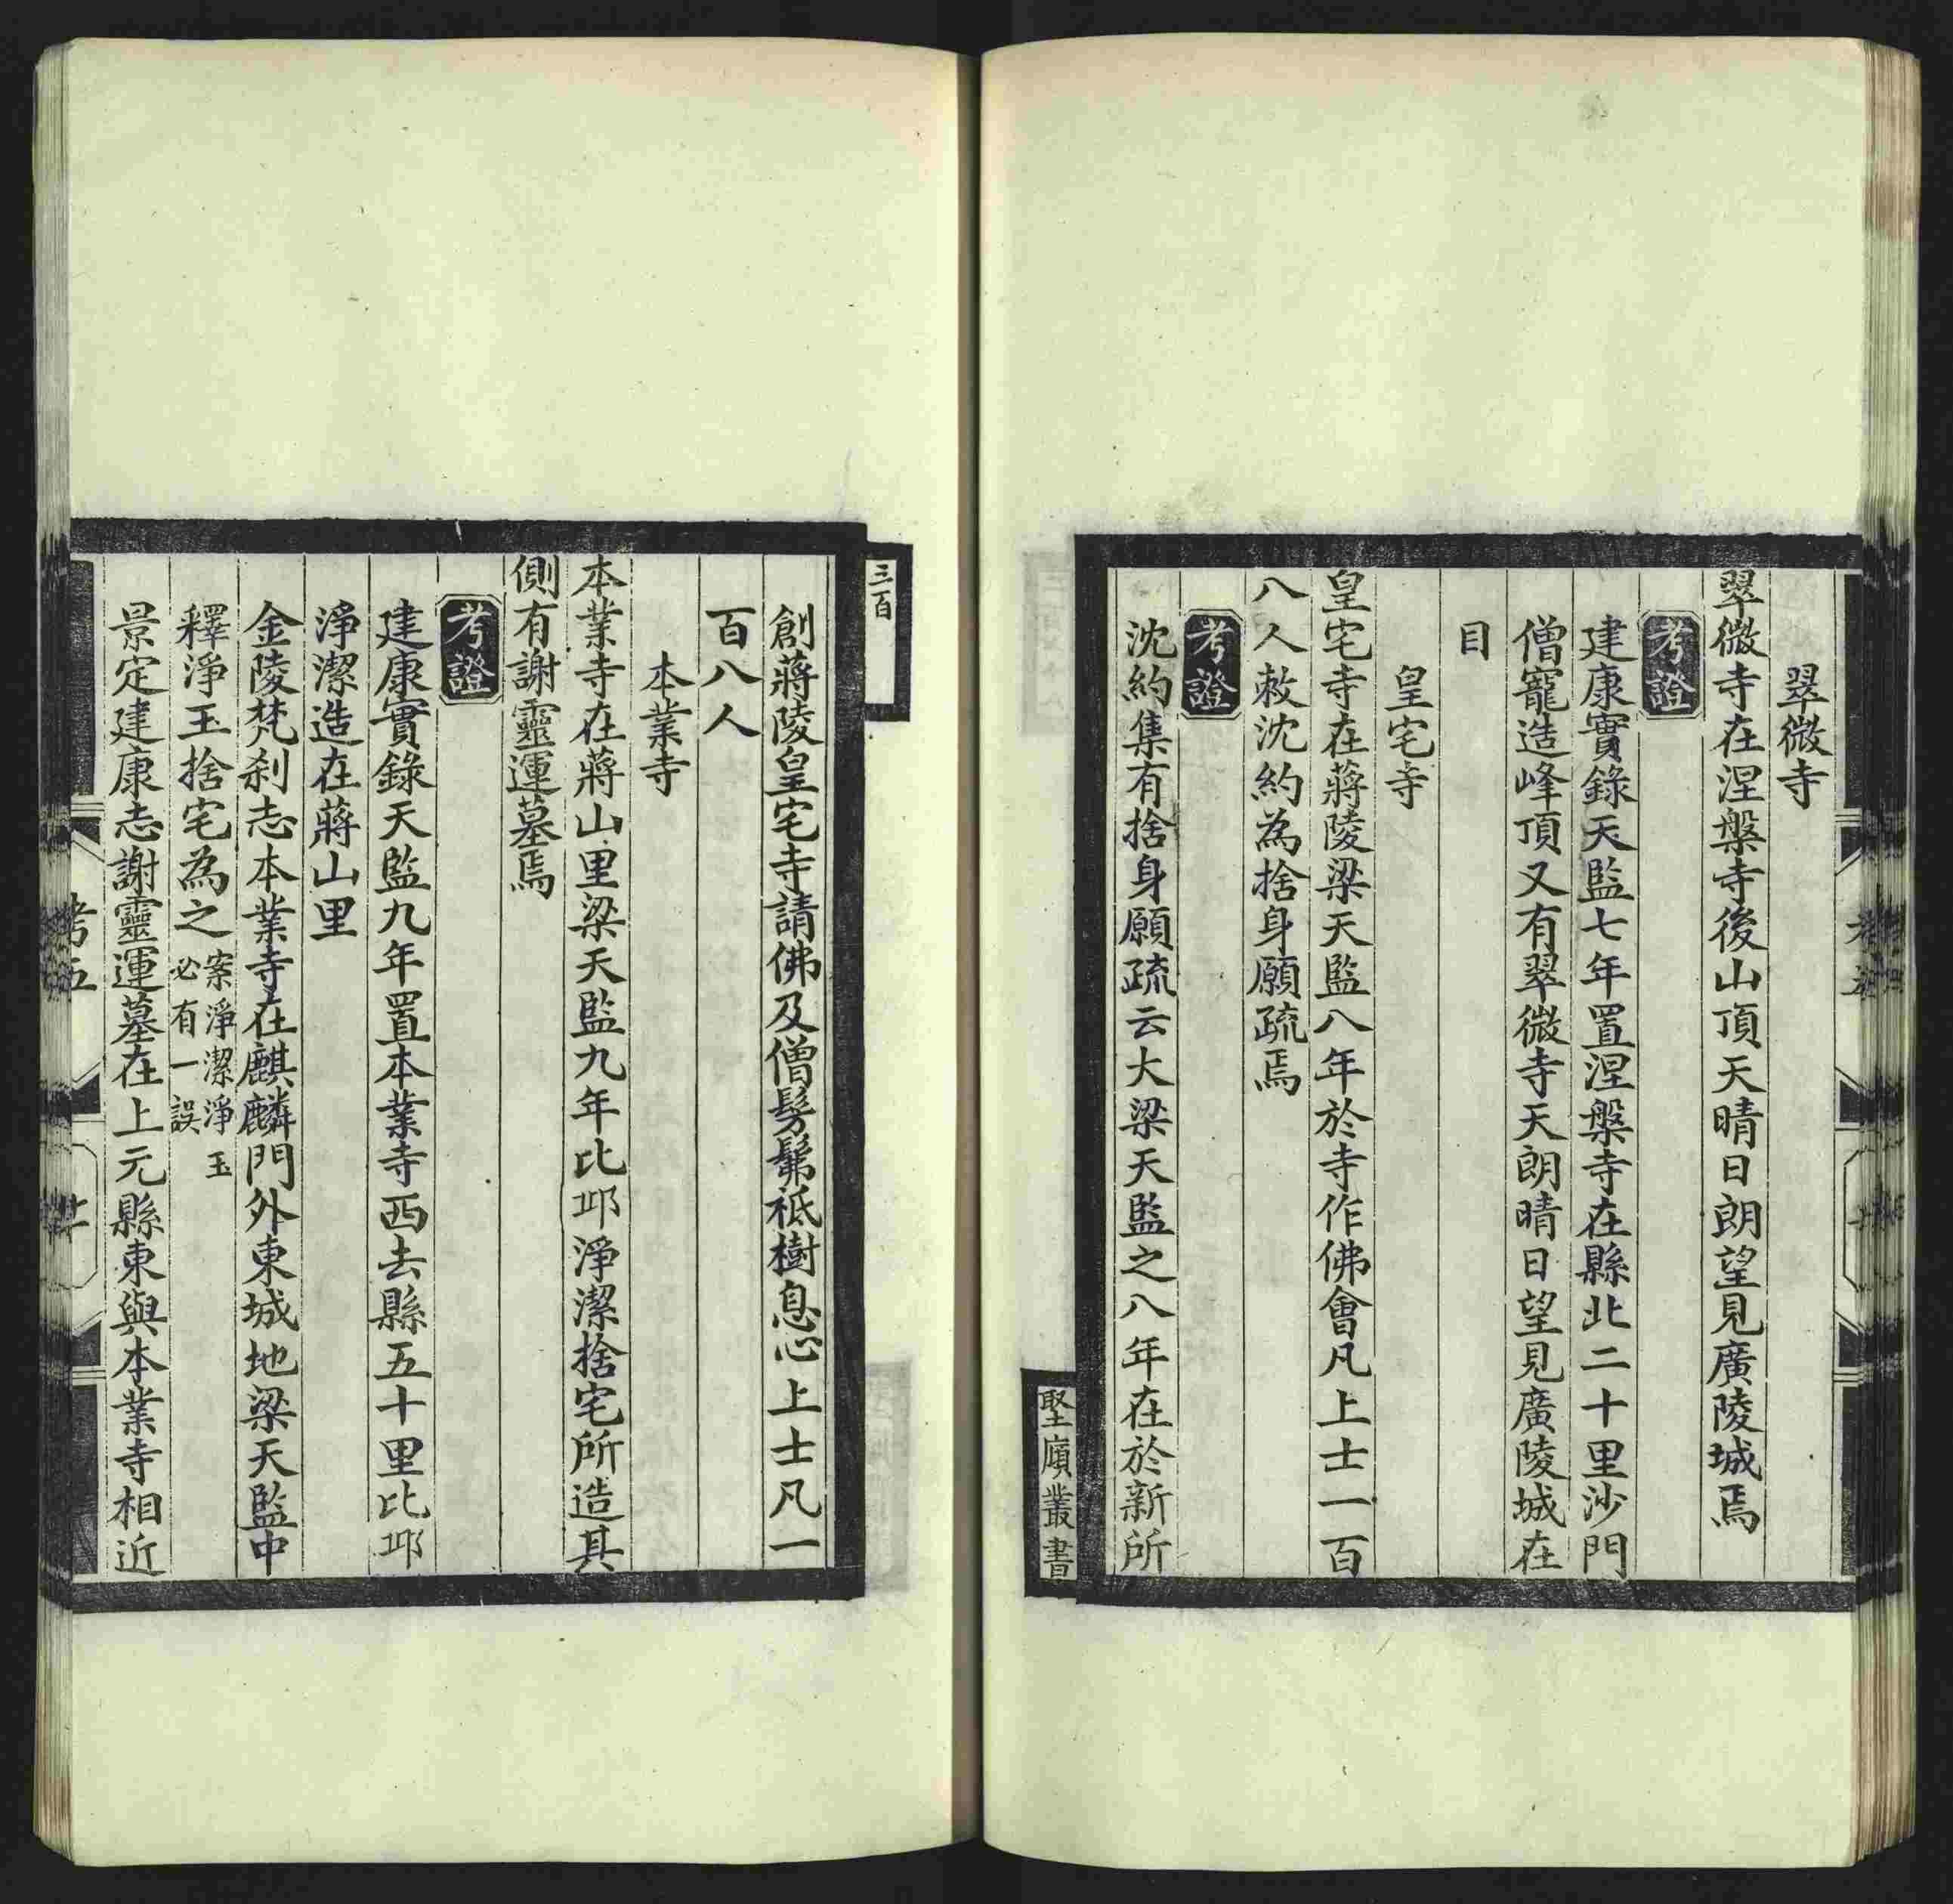 翠微寺
翠微寺在涅槃寺後山頂天晴日朗望見廣陵城焉
考證
建康實錄天監七年置涅槃寺在縣北二十里沙門
僧寵造峰頂又有翠微寺天朗晴日望見廣陵城在
目
皇宅寺
皇宅寺在蔣陵梁天監八年於寺作佛會凡上士一百
八人敕沈約為捨身願疏焉
考證
沈約集有捨身願疏云大梁天監之八年在於新所
堅廎叢書
三百
創蔣陵皇宅寺請佛及僧髣髴祇樹息心上士凡一
百八人
本業寺
本業寺在蔣山里梁天監九年比邱淨潔捨宅所造其
側有謝靈運墓焉
考證
建康實錄天監九年置本業寺西去縣五十里比邱
淨潔造在蔣山里
金陵梵刹志本業寺在麒麟門外東城地梁天監中
釋淨玉捨宅為之
案淨潔淨玉
必有一誤
景定建康志謝靈運墓在上元縣東與本業寺相近
考五